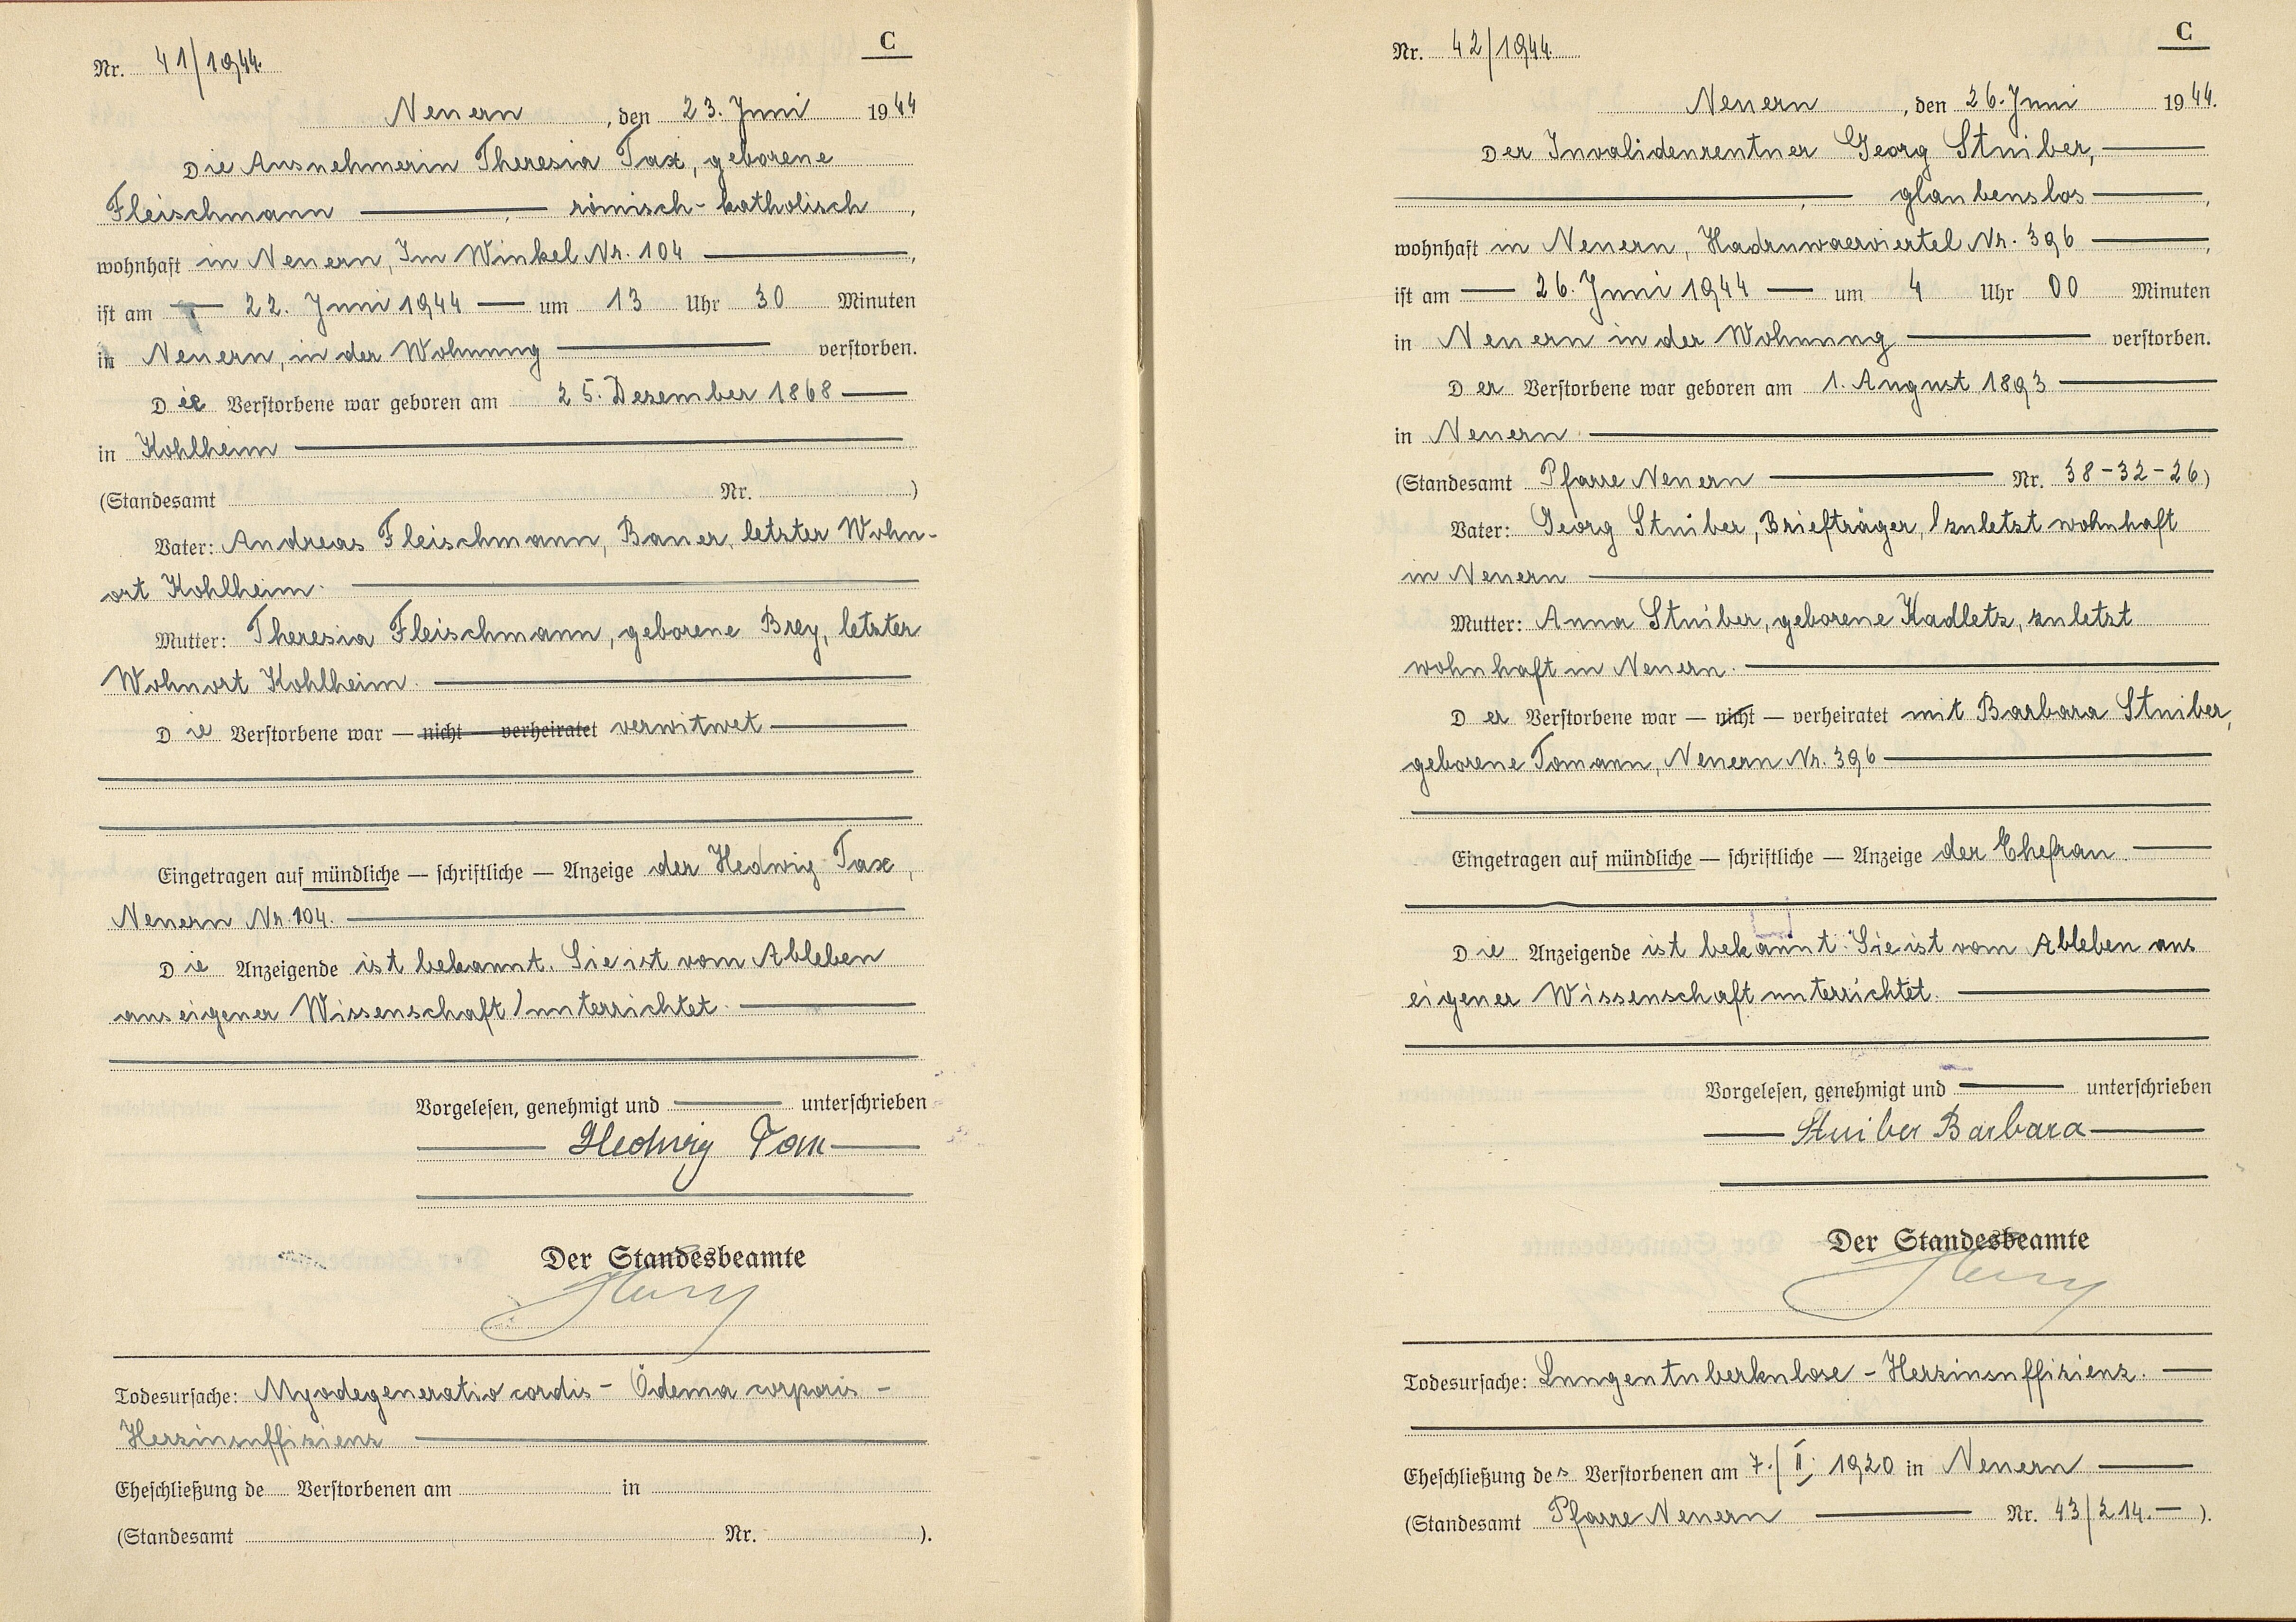 C
Nr. 41/1944.
Neuern, den 23. Juni 1944
Die Ausnehmerin Theresia Tax, geborene
Fleischmann — römisch-katholisch,
wohnhaft in Neuern, Im Winkel Nr. 104 —,
ist am — 22. Juni 1944 — um 13 Uhr 30 Minuten
in Neuern, in der Wohnung — verstorben.
Die Verstorbene war geboren am 25. Dezember 1868 —
in Kohlheim —
(Standesamt Nr. )
Vater: Andreas Fleischmann, Bauer, letzter Wohn-
ort Kohlheim. —
Mutter: Theresia Fleischmann, geborene Brey, letzter
Wohnort Kohlheim. —
Die Verstorbene war — nicht — verheiratet verwitwet —
Eingetragen auf mündliche — schriftliche — Anzeige der Hedwig Tax,
Neuern Nr. 104. —
Die Anzeigende ist bekannt. Sie ist vom Ableben
aus eigener Wissenschaft unterrichtet. —
Vorgelesen, genehmigt und — unterschrieben
— Hedwig Tax —
Der Standesbeamte
Todesursache: Myodegeneratio cordis - Ödema corporis -
Herzinsuffizienz —
Eheschließung de Verstorbenen am in
(Standesamt Nr. ).
C
Nr. 42/1944.
Neuern, den 26. Juni 1944.
Der Invalidenrentner Georg Stuiber, —
— glaubenslos —,
wohnhaft in Neuern, Hadruwaerviertel Nr. 396 —,
ist am — 26. Juni 1944 — um 4 Uhr 00 Minuten
in Neuern in der Wohnung — verstorben.
Der Verstorbene war geboren am 1. August 1893 —
in Neuern —
(Standesamt Pfarre Neuern — Nr. 38-32-26)
Vater: Georg Stuiber, Briefträger, zuletzt wohnhaft
in Neuern —
Mutter: Anna Stuiber, geborene Kadletz, zuletzt
wohnhaft in Neuern. —
Der Verstorbene war — nicht — verheiratet mit Barbara Stuiber,
geborene Tomann, Neuern Nr. 396 —
Eingetragen auf mündliche — schriftliche — Anzeige der Ehefrau. —
Die Anzeigende ist bekannt. Sie ist vom Ableben aus
eigener Wissenschaft unterrichtet. —
Vorgelesen, genehmigt und — unterschrieben
— Stuiber Barbara —
Der Standesbeamte
Todesursache: Lungentuberkulose - Herzinsuffizienz. —
Eheschließung des Verstorbenen am 7./II. 1920 in Neuern —
(Standesamt Pfarre Neuern — Nr. 43/214. — ).